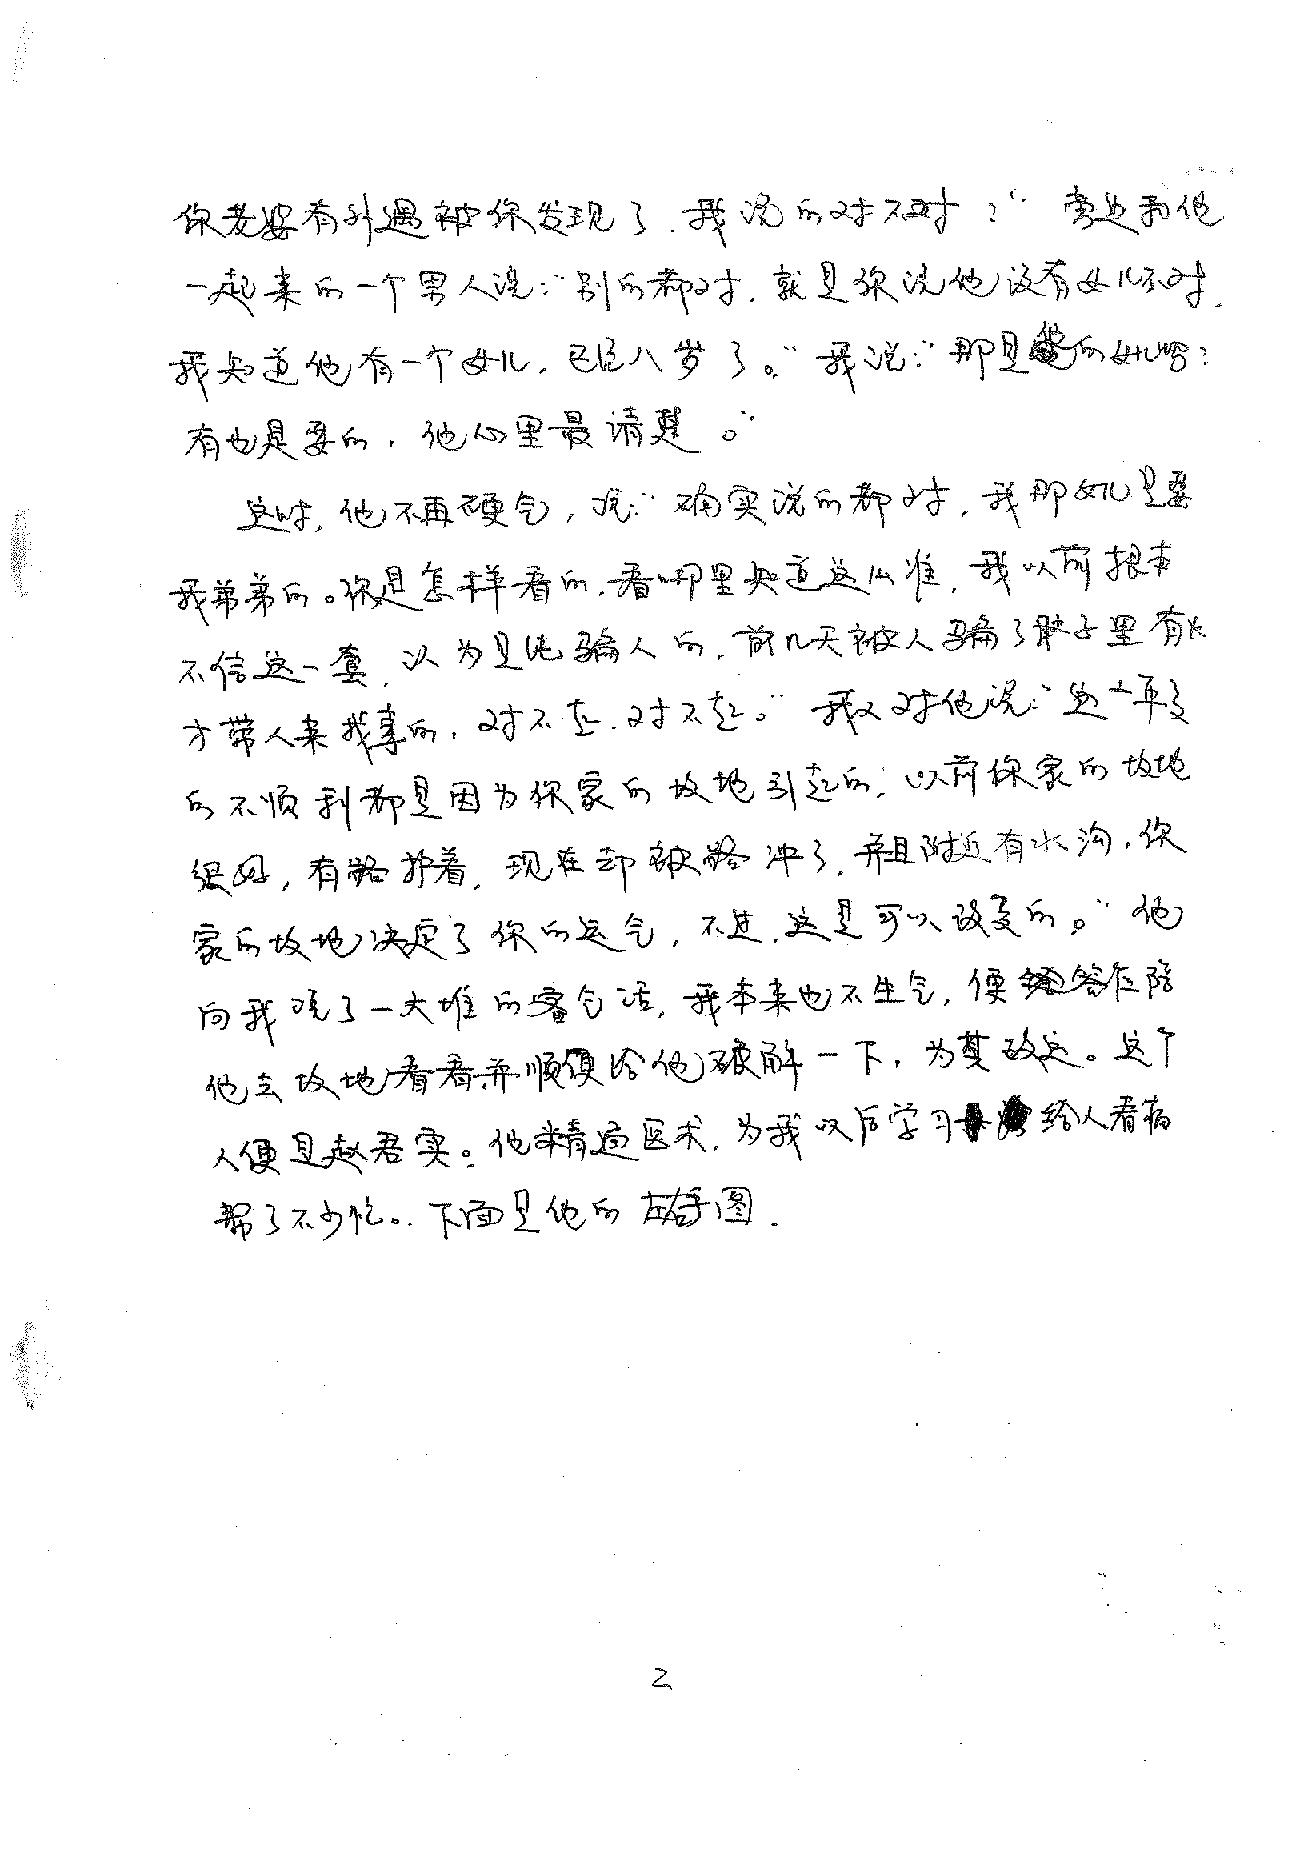 你老婆有外遇被你发现了.我说的对不对？”旁边和他
一起来的一个男人说：“别的都对.就是你说他没有女儿不对.
我知道他有一个女儿.已经八岁了。”我说：“那是他的女儿吗？
有也是要的.他心里最清楚。”
这时,他不再硬气,说：“确实说的都对,我那女儿是要
我弟弟的。你是怎样看的.看哪里知道这么准,我以前根本
不信这一套.以为是骗人的.前几天被人骗了肚子里有火
才带人来找事的.对不起.对不起。”我又对他说：“这十年多
的不顺利都是因为你家的坟地引起的;以前你家的坟地
很好,有路护着.现在却被路冲了.并且附近有水沟.你
家的坟地决定了你的运气,不过.这是可以改变的。”他
向我说了一大堆的客气话,我本来也不生气,便答应陪
他去坟地看看并顺便给他破解一下,为其改运。这个
人便是赵君实。他精通医术.为我以后学习给人看病
帮了不少忙。下面是他的左右手图.
2